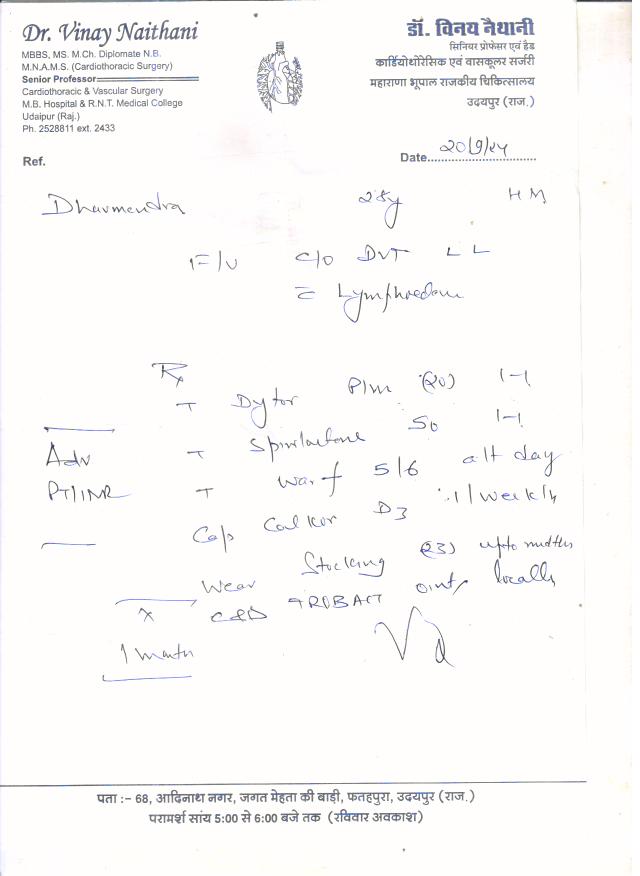 Dr. Vinay Naithani
MBBS, MS. M.Ch. Diplomate N.B.
M.N.A.M.S. (Cardiothoracic Surgery)
Senior Professor
Cardiothoracic & Vascular Surgery
M.B. Hospital & R.N.T. Medical College
Udaipur (Raj.)
Ph. 2528811 ext. 2433
डॉ. विनय नैथानी
सिनियर प्रोफेसर एवं हैड
कार्डियोथोरेसिक एवं वासकूलर सर्जरी
महाराणा भूपाल राजकीय चिकित्सालय
उदयपुर (राज.)
Ref.
Date 20/9/
Dharmendra 28y HM
F/U c/o DVT LL
Lymphoedema
Rx
T Dytor Plus (20) 1-1
T Spirolactone 50 1-1
Adv
T Warf 5/6 alt day
PT/INR
Cap Calkor D3 1/weekly
Wear Stocking (23) upto
TROBACT oint locally
X
1 month
पता :- 68, आदिनाथ नगर, जगत मेहता की बाड़ी, फतहपुरा, उदयपुर (राज.)
परामर्श सांय 5:00 से 6:00 बजे तक (रविवार अवकाश)